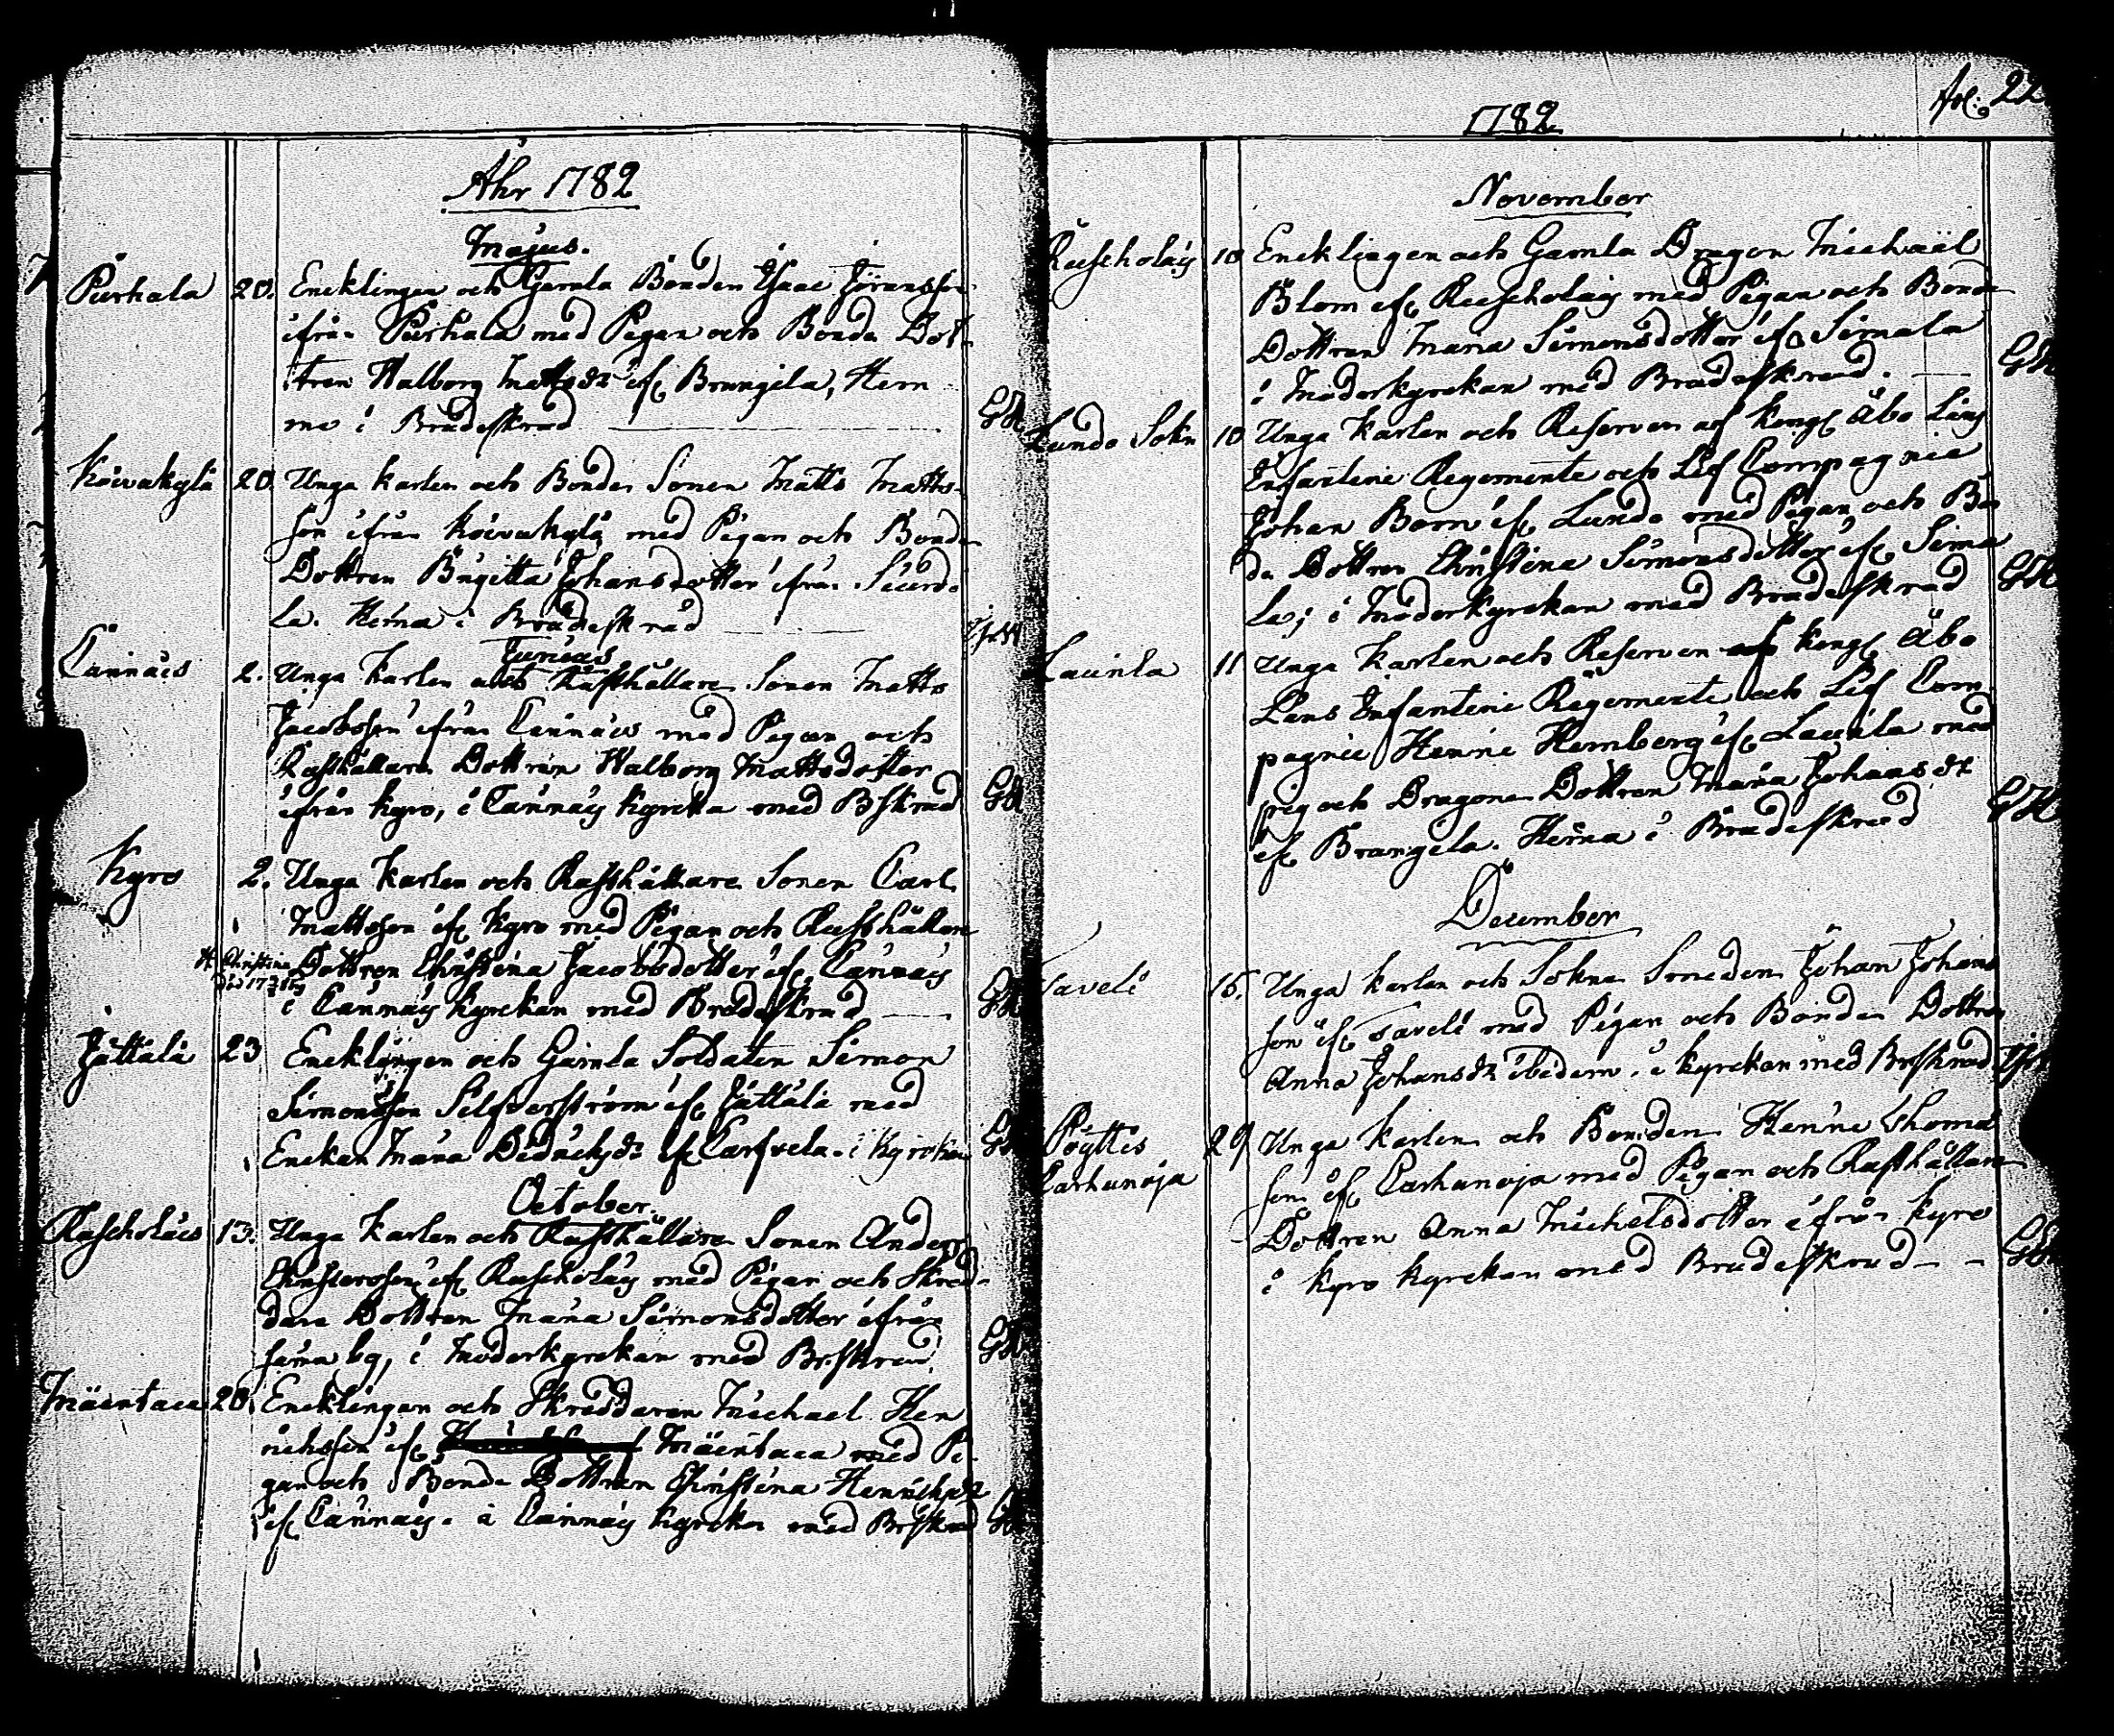 Åhr 1782
Majus.
Purhala 20. Encklingen och Gamla Bonden Isaac Jöransson
ifrån Purhala med Pigan och Bonde Dot-
tren Walborg Matts dr if. Brungila, Hem
ma i Brudeskrud GH
Koivukylä 20. Unga Karlen och Bonde Sonen Matts Matts-
son ifrån Koivukylä med Pigan och Bonde
Dottren Birgitta Johansdotter ifrån
la. Hema i Brudeskrud
Junius
Tarinais 2. Unga Karlen och Rusthållare Sonen Matts
Jacobsson ifrån Carinais med Pigan och
Rusthållare Dottren Walborg Mattsdotter
ifrån Kyro, i Carinais Kyrcka med Bskrud GH
Kyro 2. Unga Karlen och Rusthållare Sonen Carl
Mattsson if. Kyro med Pigan och Rusthållare
Christina
Dottren Christina Jacobsdotter if. Carinais
i Carinais Kyrckan med Brudeskrud GH
Jättälä 23 Encklingen och Gamla Soldaten Simon
Simonsson Silfverström if. Jättälä med
Enckan Maria dr if. i Kyrckan GH
October.
13. Unga Karlen och Rusthållare Sonen Anders
if. med Pigan och Skred-
dare Dottren Maria Simonsdotter ifrån
sama by, i Moderkyrckan med Brskrud GH
Mäentaca 20 Encklingen och Skreddaren Michael Hen
richsson if. Mäentaca med Pi-
gan och Bonde Dottren Christina Henrichsdr
if. Carinais. i Carinais Kyrcka med Brskrud GH
Fol. 22
1782
November
10 Encklingen och Gamla Dragon Michaël
Blom if. med Pigan och Bonde
Dottren Maria Simonsdotter if. Simala
i Moderkyrckan med Brudeskrud. GH
Lundo Sokn 10 Unga Karlen och Reserven af Kongl Åbo Läns
Infanterie Regemente och Lif Compagnie
Johan Born if. Lundo med Pigan och Bon
de Dottren Christina Simonsdotter if. Sima
la, i Moderkyrckan med Brudeskrud GH
Laurila 11 Unga Karlen och Reserven af Kongl Åbo
Läns Infanterie Regemente och Lif Com
pagnie Henric Hemberg if. Laurila med
pig och Dragone Dottren Maria Johans dr
if. Brangila. Hema i Brudeskrud GH
December
Saveli 15. Unga Karlen och Sokne Smeden Johan Johans
son if. Saveli med Pigan och Bonde Dottren
Anna Johansdr ibidem. i Kyrckan med Brskrud
Pöyttis
Carhunoja 29 Unga Karlen och Bonden Henric Thomas
son if. Carhunoja med Pigan och Rusthållare
Dottren Anna Michelsdotter ifrån Kyro
i Kyro Kyrckan med Brudeskrud GH